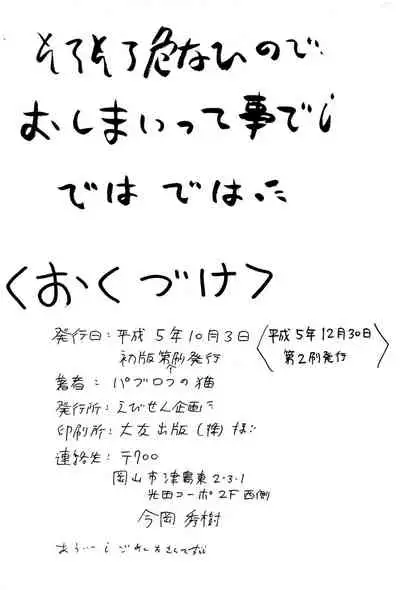 そろそろ危ないので
おしまいって事で
では では
<おくづけ>
発行日:平成5年10月3日
初版第刷発行
<平成5年12月30日
第2刷発行>
著者:パブロフの猫
発行所:えびせん企画
印刷所:大友出版(株)
連絡先:〒700
岡山市津島東2-3-1
光田コーポ2F西側
今岡秀樹